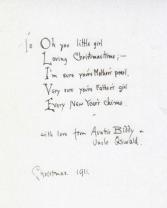 To Oh you little girl
Loving Christmastime;—
I'm sure you're Mother's pearl,
Very sure you're Father's girl
Every New Year's chime.
with love from Auntie Biddy &
Uncle Oswald.
Christmas 1911.